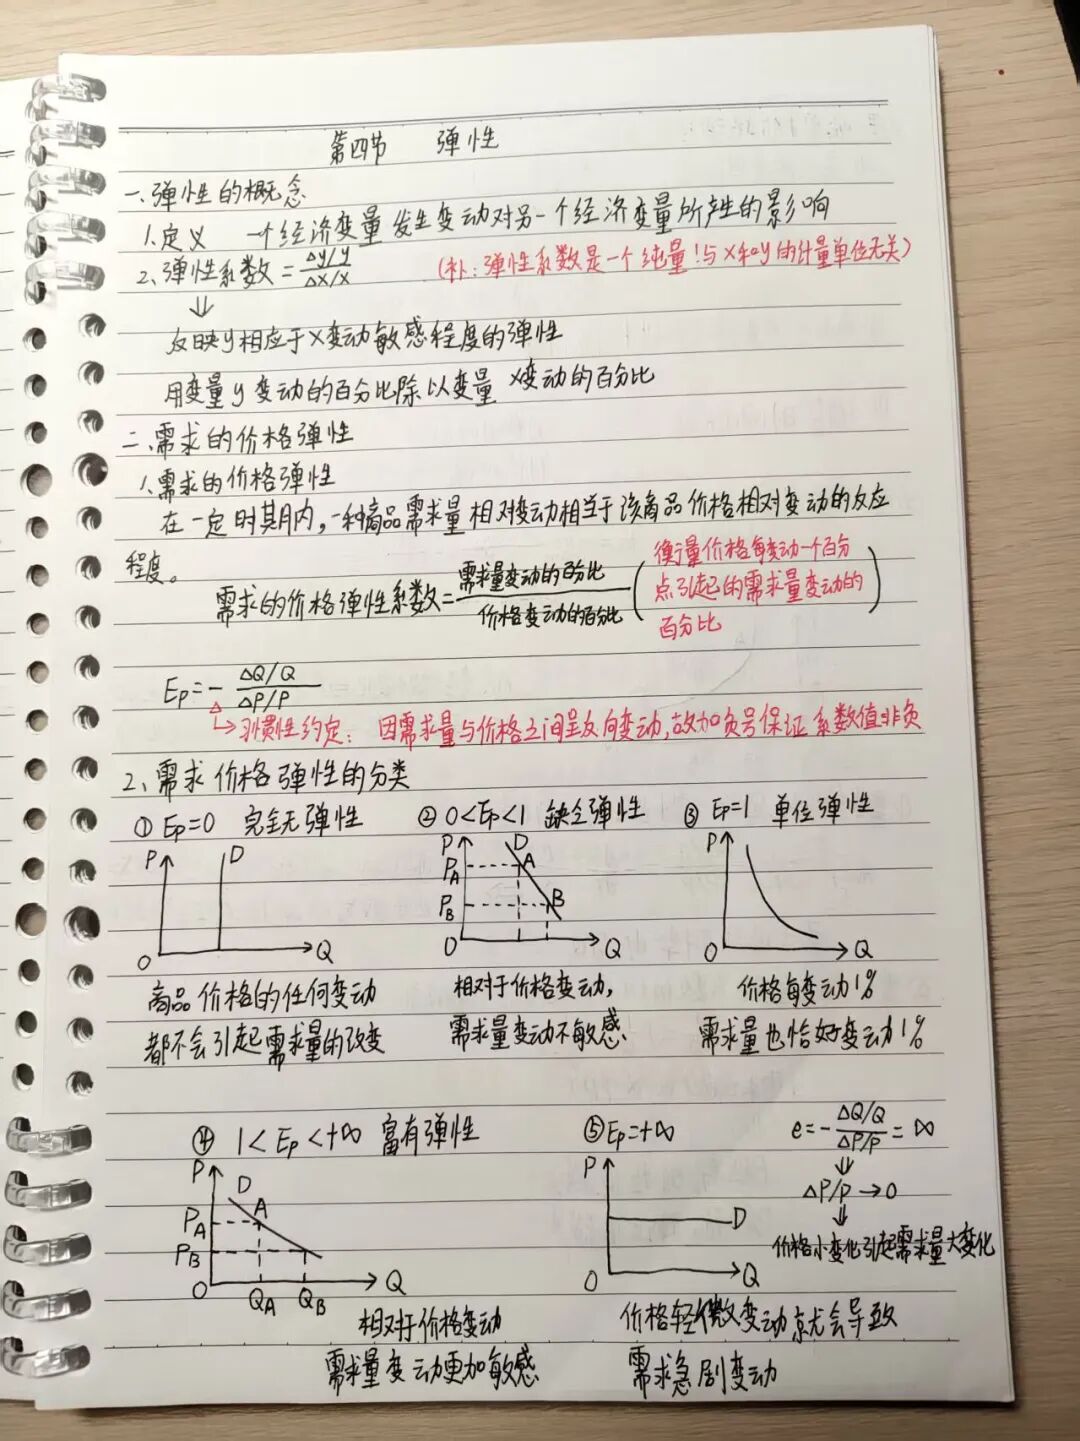 第四节 弹性
一、弹性的概念
1、定义 一个经济变量发生变动对另一个经济变量所产生的影响
2、弹性系数=Δy/y / Δx/x (补:弹性系数是一个纯量!与x和y的计量单位无关)
⇓
反映y相应于x变动敏感程度的弹性
用变量y变动的百分比除以变量x变动的百分比
二、需求的价格弹性
1、需求的价格弹性
在一定时期内,一种商品需求量相对变动相当于该商品价格相对变动的反应
程度。
需求的价格弹性系数=需求量变动的百分比/价格变动的百分比 (衡量价格每变动一个百分
点引起的需求量变动的
百分比)
Ep=- ΔQ/Q / ΔP/P
△
↳习惯性约定:因需求量与价格之间呈反向变动,故加负号保证系数值非负
2、需求价格弹性的分类
① Ep=0 完全无弹性 ② 0<Ep<1 缺乏弹性 ③ Ep=1 单位弹性
P D O Q
P D PA A PB B O Q
P O Q
商品价格的任何变动 相对于价格变动, 价格每变动1%
都不会引起需求量的改变 需求量变动不敏感 需求量也恰好变动1%
④ 1<Ep<+∞ 富有弹性 ⑤ Ep=+∞ e=- ΔQ/Q / ΔP/P =∞
⇓
ΔP/P→0
⇓
价格小变化引起需求量大变化
P D PA A PB O QA QB Q
P D O Q
相对于价格变动 价格轻微变动就会导致
需求量变动更加敏感 需求急剧变动